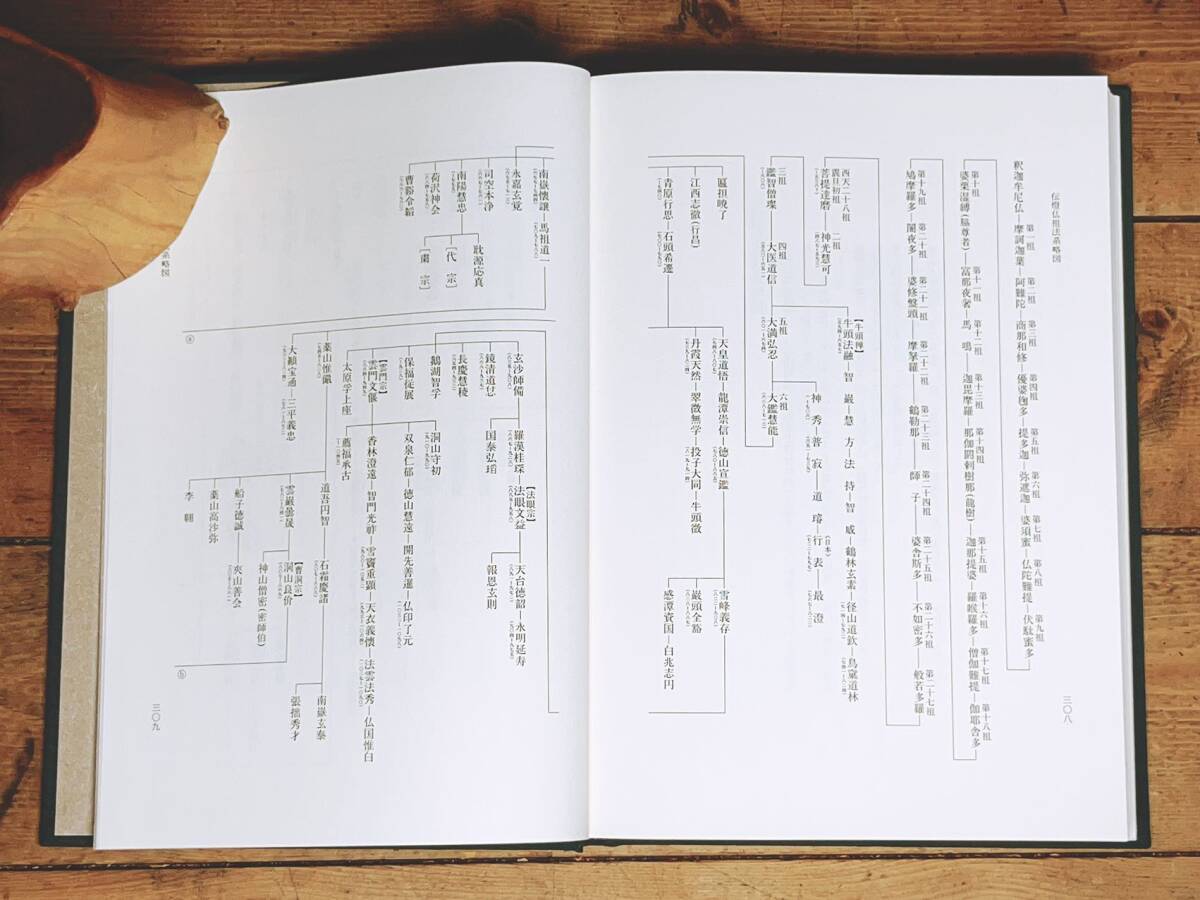 伝燈仏祖法系略図
第一祖 第二祖 第三祖 第四祖 第五祖 第六祖 第七祖 第八祖 第九祖
釈迦牟尼仏―摩訶迦葉―阿難陀―商那和修―優婆毱多―提多迦―弥遮迦―婆須蜜―仏陀難提―伏駄蜜多
第十祖 第十一祖 第十二祖 第十三祖 第十四祖 第十五祖 第十六祖 第十七祖 第十八祖
婆栗湿縛(脇尊者)―富那夜奢―馬鳴―迦毘摩羅―那伽閼剌樹那(龍樹)―迦那提婆―羅睺羅多―僧伽難提―伽耶舎多
第十九祖 第二十祖 第二十一祖 第二十二祖 第二十三祖 第二十四祖 第二十五祖 第二十六祖 第二十七祖
鳩摩羅多―闍夜多―婆修盤頭―摩拏羅―鶴勒那―師子―婆舎斯多―不如密多―般若多羅
西天二十八祖
震旦初祖 二祖
菩提達磨―神光慧可
【牛頭禅】
牛頭法融―智巌―慧方―法持―智威―鶴林玄素―径山道欽―鳥窠道林
三祖 四祖 五祖 六祖
鑑智僧璨―大医道信 大満弘忍 大鑑慧能
〔日本〕
神秀―普寂―道璿―行表―最澄
匾担暁了
江西志徹(行昌)
青原行思―石頭希遷
天皇道悟―龍潭崇信―徳山宣鑑
丹霞天然―翠微無学―投子大同―牛頭微
雪峰義存
巌頭全豁
感潭資国―白兆志円
三〇八
南嶽懐譲―馬祖道一
永嘉玄覚
司空本浄
南陽慧忠
荷沢神会
曹谿令韜
耽源応真
〔代宗〕
〔粛宗〕
ⓐ
玄沙師備 羅漢桂琛―法眼文益
【法眼宗】
天台徳韶―永明延寿
報恩玄則
国泰弘瑫
鏡清道怤
長慶慧稜
鵝湖智孚
保福従展
【雲門宗】
雲門文偃
太原孚上座
洞山守初
双泉仁郁―徳山慧遠―開先善暹―仏印了元
香林澄遠―智門光祚―雪竇重顕―天衣義懐―法雲法秀―仏国惟白
薦福承古
薬山惟儼
大顚宝通―三平義忠
道吾円智―石霜慶諸
南嶽玄泰
張拙秀才
雲巌曇晟
【曹洞宗】
洞山良价
神山僧密(密師伯)
船子徳誠―夾山善会
薬山高沙弥
李翺
ⓑ
系略図
三〇九